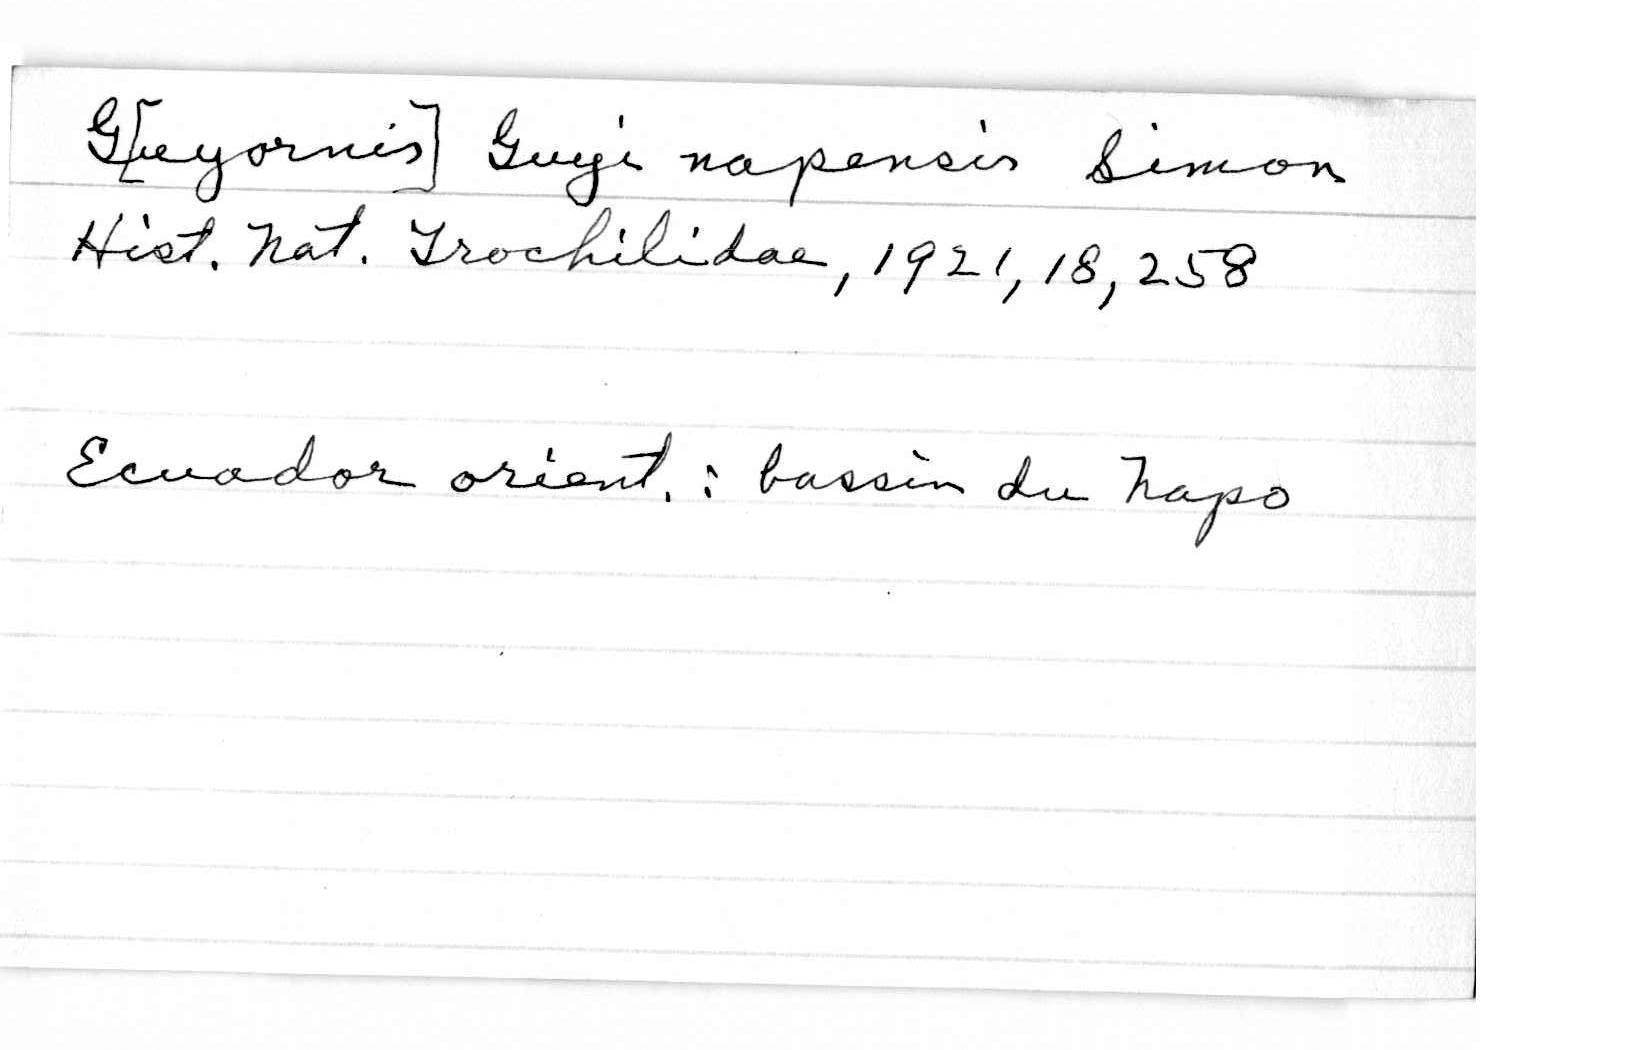 G[uyornis] Guyi napensis Simon
Hist. Nat. Trochilidae, 1921, 18, 258
Ecuador orient. : bassin du Napo